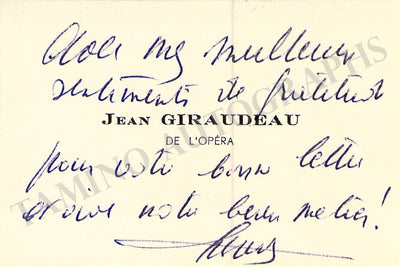 Avec mes meilleurs
sentiments de gratitude
JEAN GIRAUDEAU
DE L'OPÉRA
pour votre bonne lettre
et vive notre beau métier!
TAMINO AUTOGRAPHS